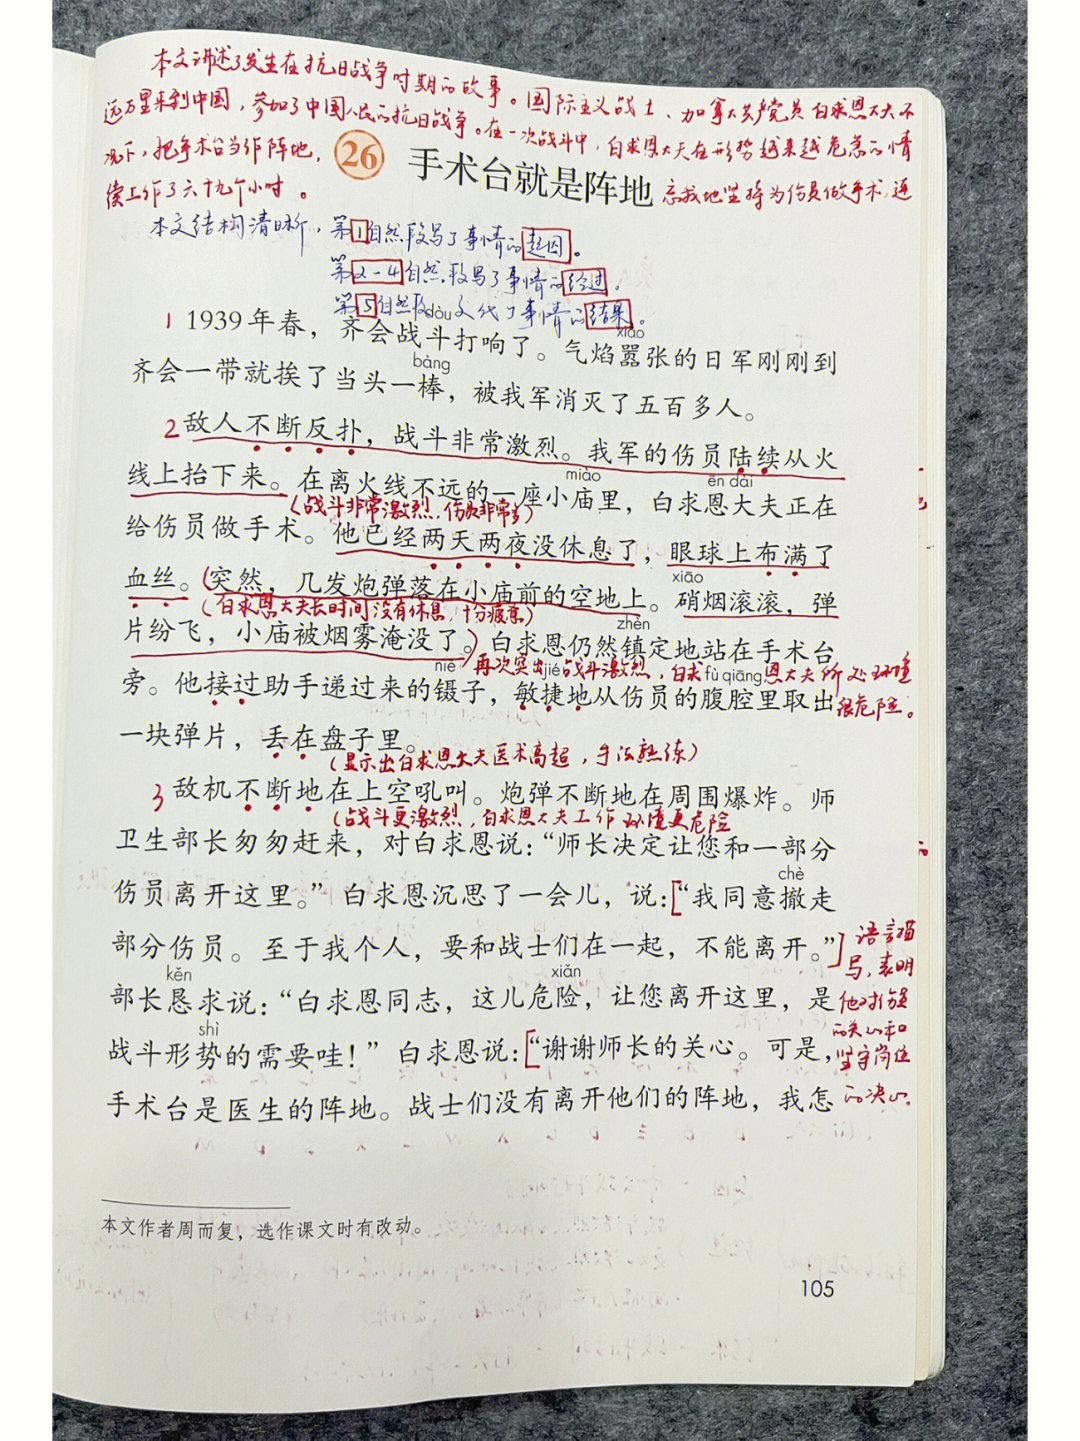 本文讲述了发生在抗日战争时期的故事。国际主义战士、加拿大共产党员白求恩大夫不
远万里来到中国，参加了中国人民的抗日战争。在一次战斗中，白求恩大夫在形势越来越危急的情
况下，把手术台当作阵地，忘我地坚持为伤员做手术，连
续工作了六十九个小时。
26 手术台就是阵地
本文结构清晰，第1自然段写了事情的起因。
第2-4自然段写了事情的经过。
第5自然段交代了事情的结果。
dòu xiāo
1 1939年春，齐会战斗打响了。气焰嚣张的日军刚刚到
bàng
齐会一带就挨了当头一棒，被我军消灭了五百多人。
2 敌人不断反扑，战斗非常激烈。我军的伤员陆续从火
miào ēn dài
线上抬下来。在离火线不远的一座小庙里，白求恩大夫正在
（战斗非常激烈，伤员非常多）
给伤员做手术。他已经两天两夜没休息了，眼球上布满了
xiāo
血丝。（突然，几发炮弹落在小庙前的空地上。硝烟滚滚，弹
（白求恩大夫长时间没有休息，十分疲惫）
zhèn
片纷飞，小庙被烟雾淹没了。）白求恩仍然镇定地站在手术台
niè jié fù qiāng
再次突出战斗激烈，白求恩大夫所处环境
很危险。
旁。他接过助手递过来的镊子，敏捷地从伤员的腹腔里取出
一块弹片，丢在盘子里。
（显示出白求恩大夫医术高超，手法熟练）
3 敌机不断地在上空吼叫。炮弹不断地在周围爆炸。师
（战斗更激烈，白求恩大夫工作环境更危险
卫生部长匆匆赶来，对白求恩说：“师长决定让您和一部分
chè
伤员离开这里。”白求恩沉思了一会儿，说：[“我同意撤走
部分伤员。至于我个人，要和战士们在一起，不能离开。”]
语言描
写，表明
他对伤员
的关心和
坚守岗位
的决心。
kěn xiǎn
部长恳求说：“白求恩同志，这儿危险，让您离开这里，是
shì
战斗形势的需要哇！”白求恩说：[“谢谢师长的关心。可是，
手术台是医生的阵地。战士们没有离开他们的阵地，我怎
本文作者周而复，选作课文时有改动。
105